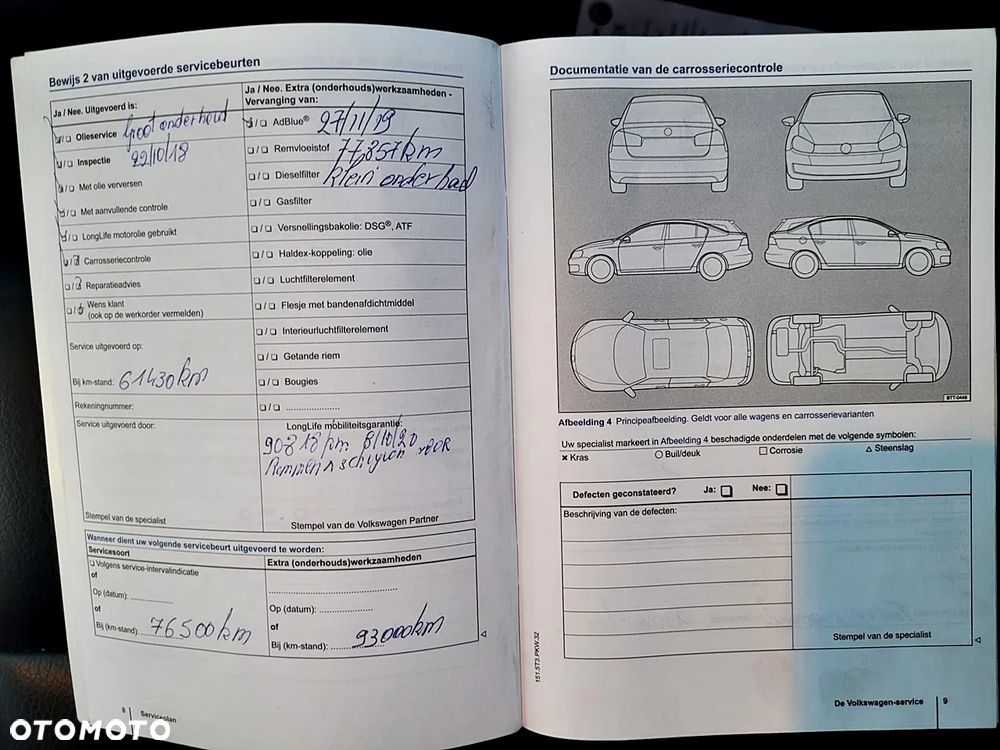 Bewijs 2 van uitgevoerde servicebeurten
Ja / Nee. Uitgevoerd is:
Olieservice Groot onderhoud
Inspectie 22/10/18
Met olie verversen
Met aanvullende controle
LongLife motorolie gebruikt
Carrosseriecontrole
Reparatieadvies
Wens klant
(ook op de werkorder vermelden)
Service uitgevoerd op:
Bij km-stand: 61430km
Rekeningnummer:
Service uitgevoerd door:
Stempel van de specialist
Ja / Nee. Extra (onderhouds)werkzaamheden -
Vervanging van:
AdBlue® 27/11/19
Remvloeistof 77,857km
Dieselfilter klein onderhoud
Gasfilter
Versnellingsbakolie: DSG®, ATF
Haldex-koppeling: olie
Luchtfilterelement
Flesje met bandenafdichtmiddel
Interieurluchtfilterelement
Getande riem
Bougies
LongLife mobiliteitsgarantie:
90818 8/10/20
Stempel van de Volkswagen Partner
Wanneer dient uw volgende servicebeurt uitgevoerd te worden:
Servicesoort
Volgens service-intervalindicatie
of
Op (datum):
of
Bij (km-stand): 76500km
Extra (onderhouds)werkzaamheden
Op (datum):
of
Bij (km-stand): 93000km
8 Serviceplan
OTOMOTO
Documentatie van de carrosseriecontrole
BTT-0449
Afbeelding 4 Principeafbeelding. Geldt voor alle wagens en carrosserievarianten
Uw specialist markeert in Afbeelding 4 beschadigde onderdelen met de volgende symbolen:
Kras Buil/deuk Corrosie Steenslag
Defecten geconstateerd? Ja: Nee:
Beschrijving van de defecten:
Stempel van de specialist
151.5T3.PKW.32
De Volkswagen-service 9